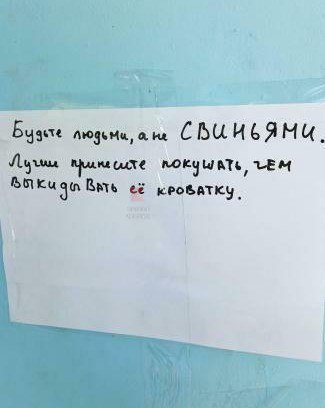 Будьте людьми, а не СВИНЬЯМИ.
Лучше принесите покушать, чем
выкидывать её кроватку.